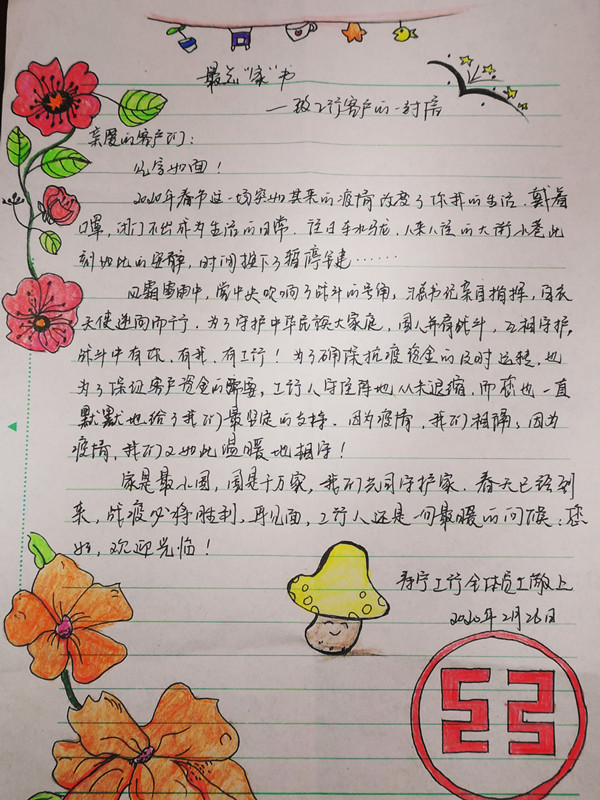 最忠“家”书
—致工行客户的一封信
亲爱的客户们:
见字如面!
2020年春节这一场突如其来的疫情改变了你我的生活.戴着
口罩,闭门不出成为生活的日常.往日车水马龙,人来人往的大街小巷此
刻如此的安静,时间按下了暂停键……
风霜雪雨中,党中央吹响了战斗的号角,习总书记亲自指挥,白衣
天使逆向而行.为了守护中华民族大家庭,国人并肩战斗,互相守护.
战斗中有你.有我.有工行!为了确保抗疫资金的及时运转,也
为了保证客户资金的需要,工行人守住阵地从未退缩.而您也一直
默默地给了我们最坚定的支持.因为疫情,我们相隔;因为
疫情,我们又如此温暖地相守!
家是最小国,国是千万家,我们共同守护家.春天已经到
来,战疫必将胜利,再见面,工行人还是一句最暖的问候:您
好,欢迎光临!
寿宁工行全体员工敬上
2020年2月26日